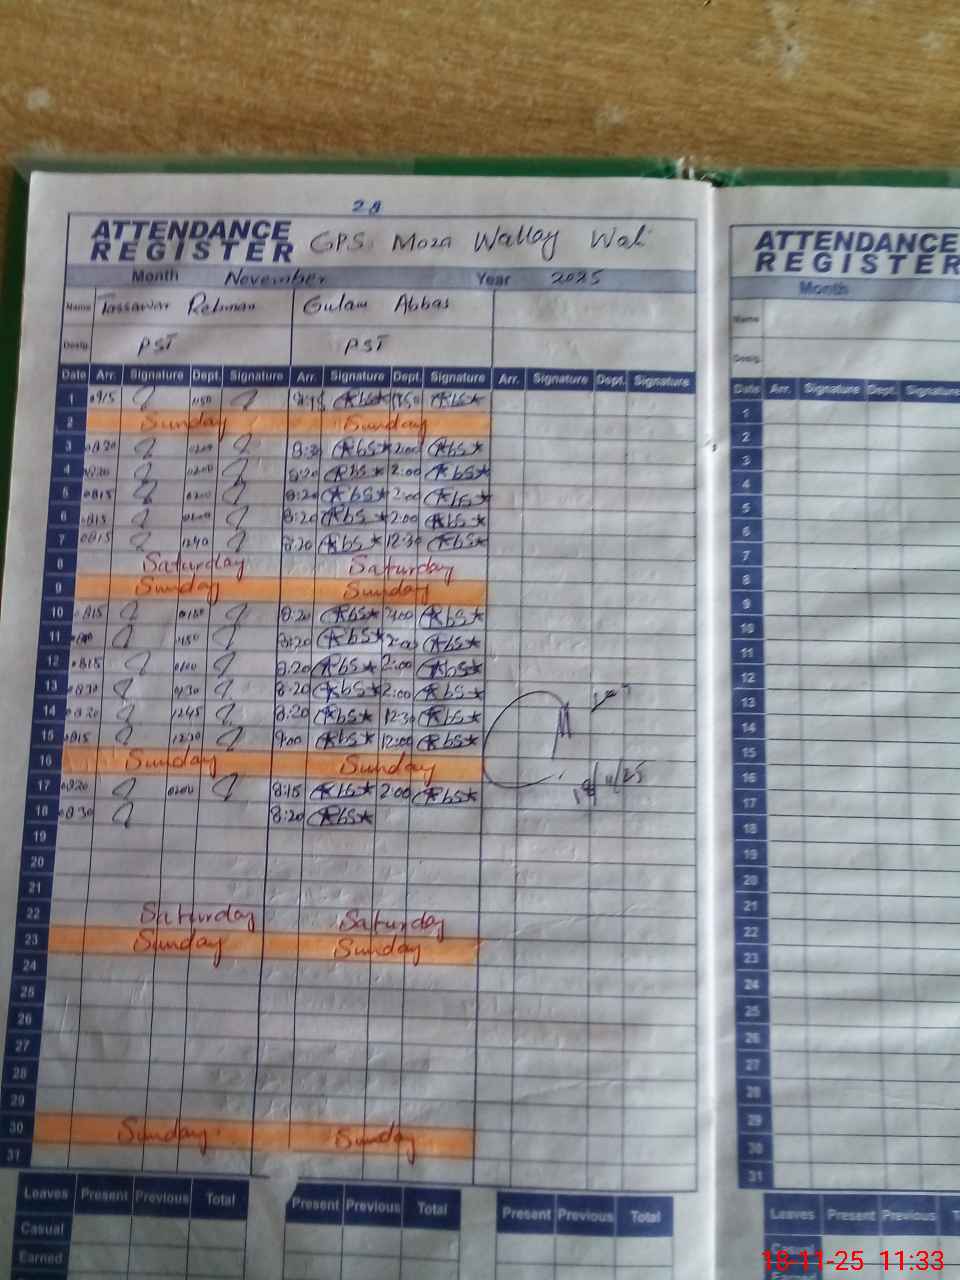 28
ATTENDANCE REGISTER GPS Moza Wallay Wali
Month November Year 2025
Name Tassawar Rehman Gulam Abbas
Desig. PST PST
Date Arr. Signature Dept. Signature Arr. Signature Dept. Signature Arr. Signature Dept. Signature
1 0915 1150
2 Sunday Sunday
3 0820 0200 8:20 Abs 2:00 Abs
4 0820 0200 8:20 Abs 2:00 Abs
5 0815 0200 8:20 Abs 2:00 Abs
6 0815 0200 8:20 Abs 2:00 Abs
7 0815 1240 8:20 Abs 12:30 Abs
8 Saturday Saturday
9 Sunday Sunday
10 0815 0150 8:20 Abs 2:00 Abs
11 8:20 Abs 2:00 Abs
12 0815 8:20 Abs 2:00 Abs
13 0830 8:20 Abs 2:00 Abs
14 0820 1245 8:20 Abs 12:30 Abs
15 0815 1230 9:00 Abs 12:00 Abs
16 Sunday Sunday
17 0820 0200 8:15 Abs 2:00 Abs
18 0830 8:20 Abs
18/11/25
19
20
21
22 Saturday Saturday
23 Sunday Sunday
24
25
26
27
28
29
30 Sunday Sunday
31
Leaves Present Previous Total Present Previous Total Present Previous Total
Casual
Earned
ATTENDANCE
REGISTER
Month
Name
Desig.
Date Arr. Signature Dept. Signature
1
2
3
4
5
6
7
8
9
10
11
12
13
14
15
16
17
18
19
20
21
22
23
24
25
26
27
28
29
30
31
Leaves Present Previous
18-11-25 11:33